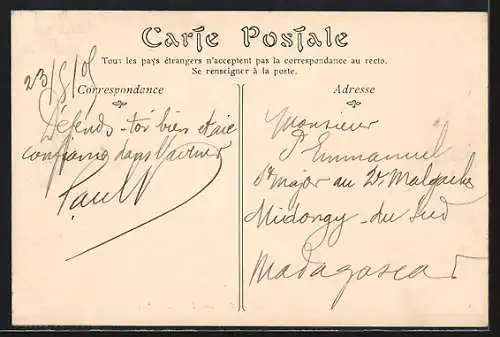 Carte Postale
Tous les pays étrangers n'acceptent pas la correspondance au recto.
Se renseigner à la poste.
23/8/05
Correspondance
Défends-toi bien et aie
confiance dans l'avenir
Paul
Adresse
Monsieur
Emmanuel
Major au 2e Malgache
Midongy-du Sud
Madagascar